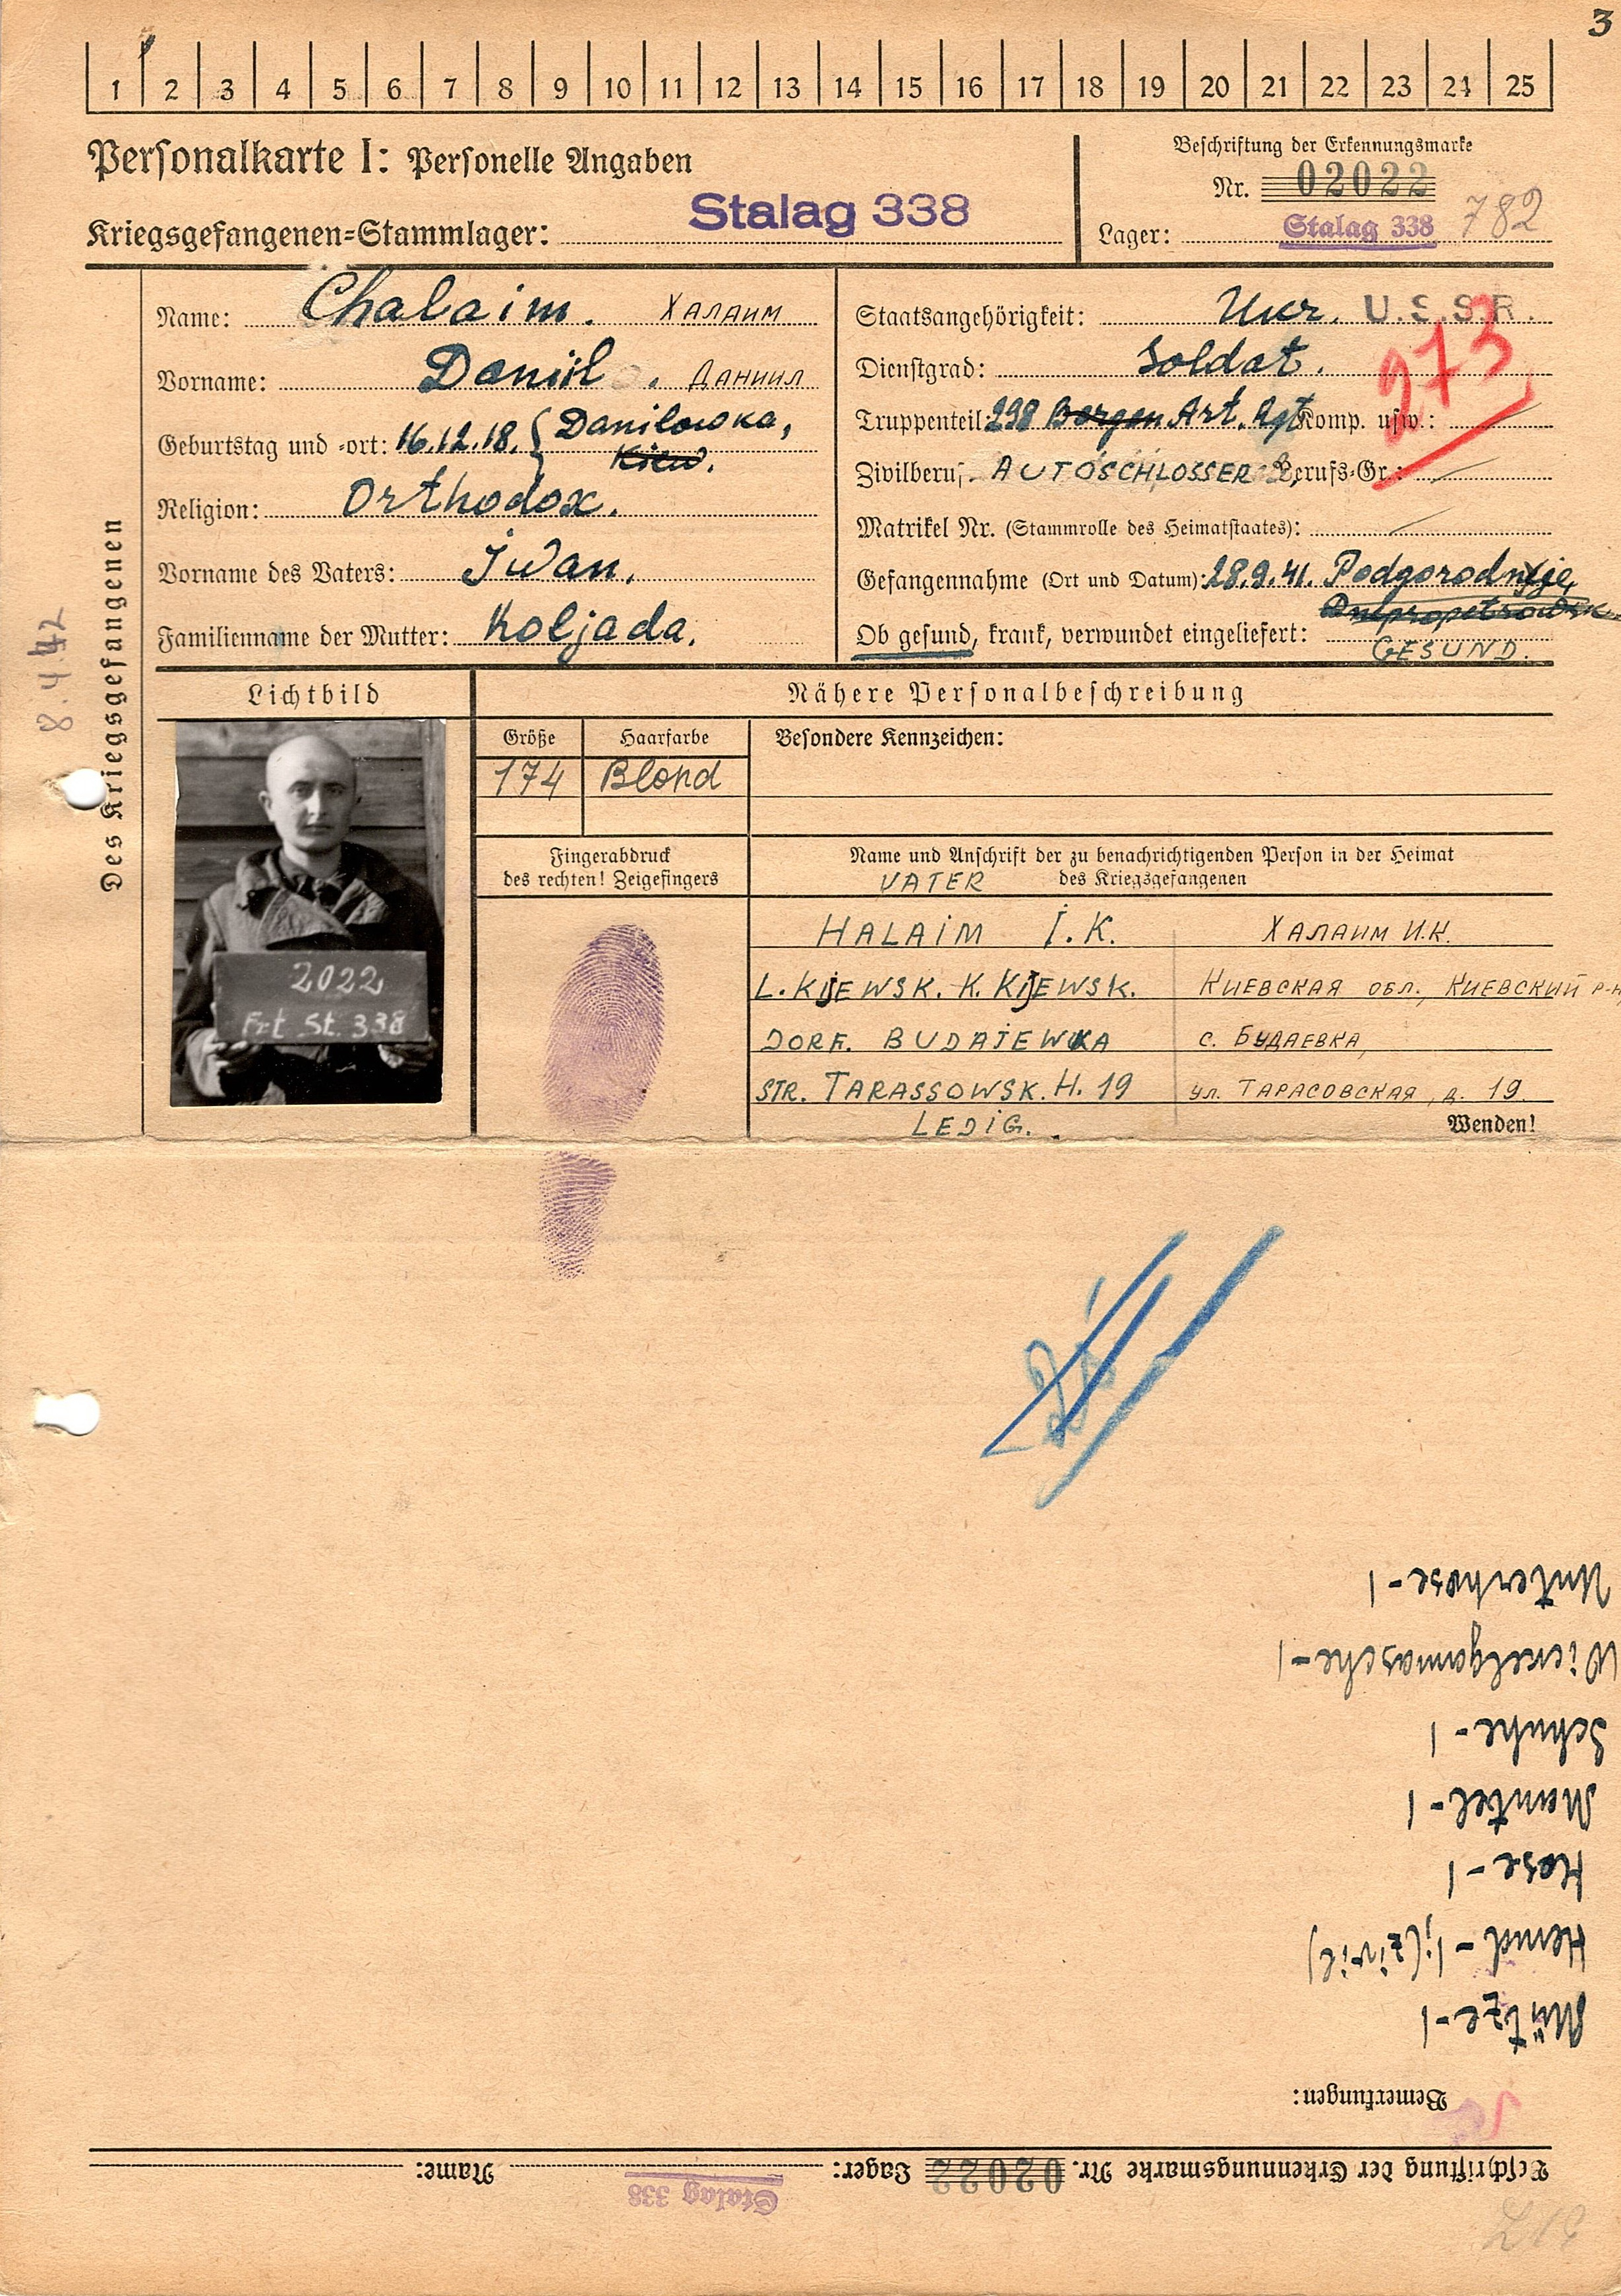 3
1 2 3 4 5 6 7 8 9 10 11 12 13 14 15 16 17 18 19 20 21 22 23 24 25
Personalkarte I: Personelle Angaben
Kriegsgefangenen=Stammlager: Stalag 338
Beschriftung der Erkennungsmarke
Nr. 02022
Lager: Stalag 338 782
Des Kriegsgefangenen
8.4.42
Name: Chalaim. Халаим
Vorname: Daniil. Даниил
Geburtstag und =ort: 16.12.18. Danilowka,
Kiew.
Religion: Orthodox.
Vorname des Vaters: Iwan.
Familienname der Mutter: Koljada.
Staatsangehörigkeit: Ukr. U.S.S.R.
Dienstgrad: Soldat.
273
Truppenteil: 298 Art. Rgt Komp. usw.:
Zivilberuf: AUTOSCHLOSSER Berufs=Gr.:
Matrikel Nr. (Stammrolle des Heimatstaates):
Gefangennahme (Ort und Datum): 28.9.41. Podgorodnje,
Dnepropetrowsk
Ob gesund, krank, verwundet eingeliefert:
GESUND.
Lichtbild
Nähere Personalbeschreibung
Größe Haarfarbe Besondere Kennzeichen:
174 Blond
2022
Frt St. 338
Fingerabdruck
des rechten! Zeigefingers
Name und Anschrift der zu benachrichtigenden Person in der Heimat
des Kriegsgefangenen
VATER
HALAIM I.K. ХАЛАИМ И.К.
L. KIJEWSK. K. KIJEWSK. КИЕВСКАЯ ОБЛ., КИЕВСКИЙ Р-Н
DORF. BUDAJEWKA с. БУДАЕВКА,
STR. TARASSOWSK. H. 19 ул. ТАРАСОВСКАЯ, д. 19.
LEDIG.
Wenden!
Beschriftung der Erkennungsmarke Nr. 02022 Lager: Stalag 338 Name:
Bemerkungen:
Mütze-1
Hemd-1;(zivil)
Hose-1
Mantel-1
Schuhe-1
Wickelgamasche-1
Unterhose-1